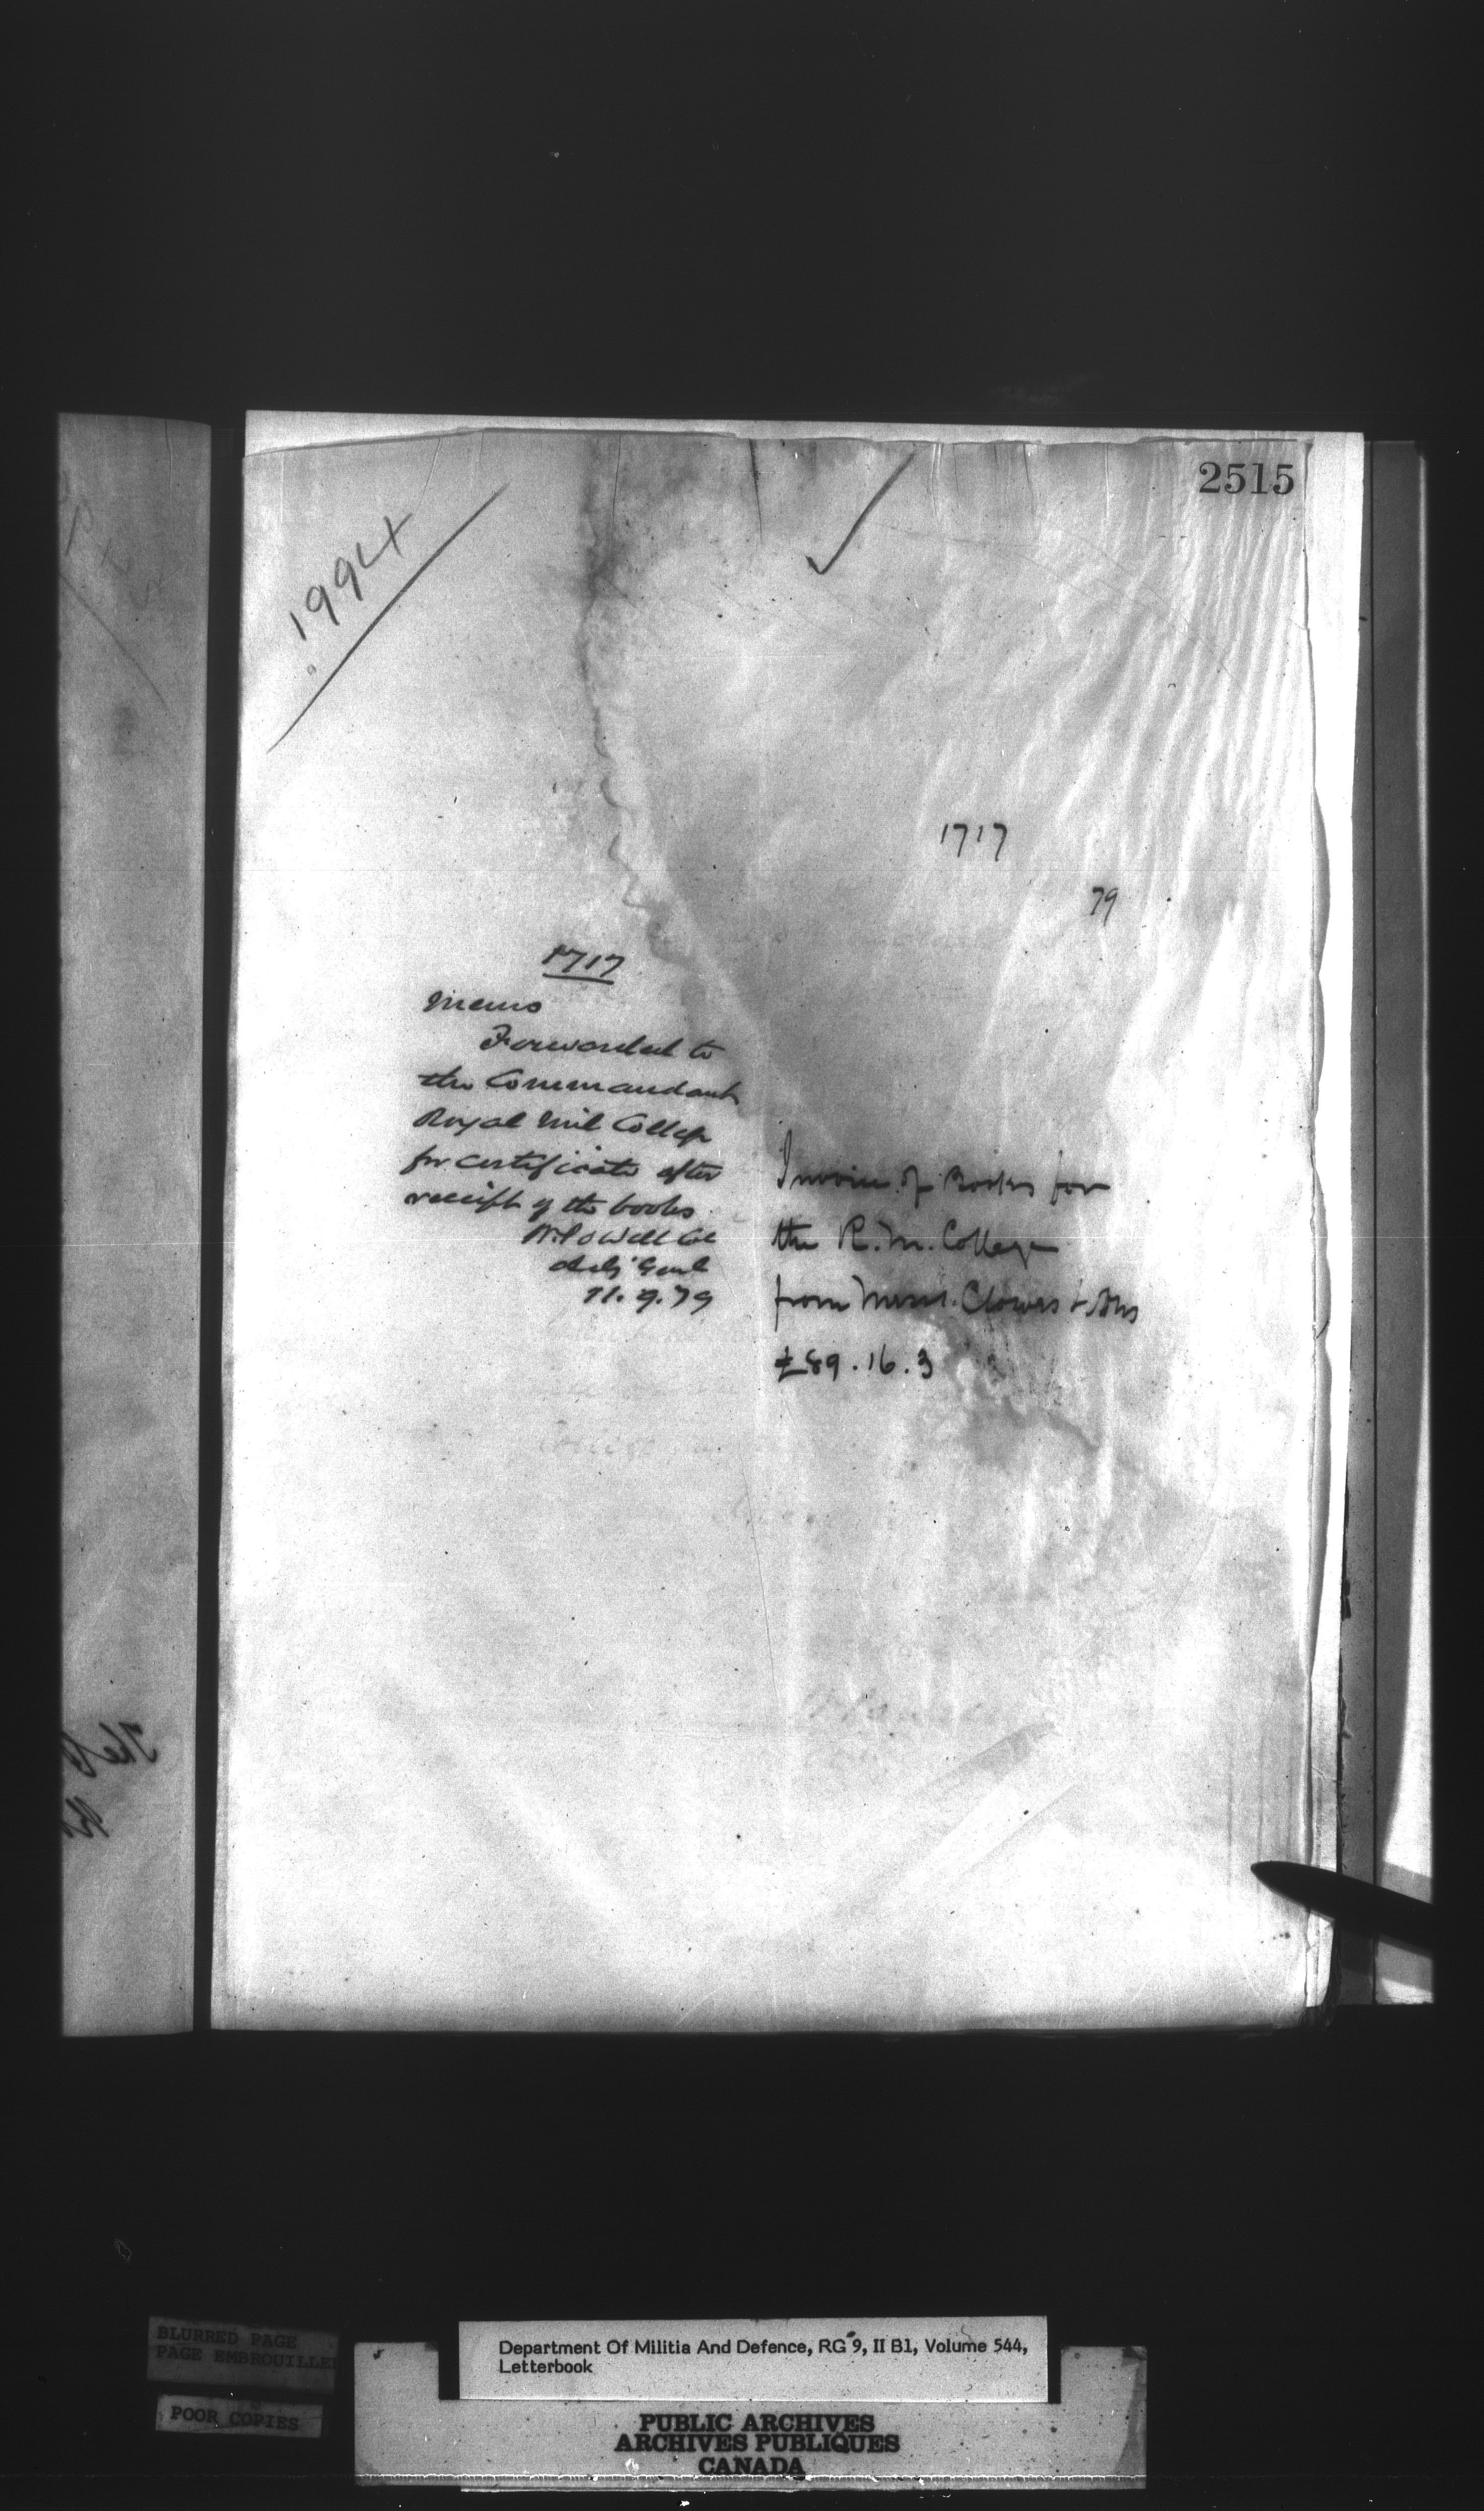 2515
1994
1717
79
1717
Memo
Forwarded to
the Commandant
Royal Mil College
for certificate after
receipt of the books
W. Powell Col
Adj Genl
11.9.79
Invoice of Books for
the R.M. College
from Messrs. Clowes & Sons
£89.16.3
The
BLURRED PAGE
PAGE EMBROUILLE
POOR COPIES
Department Of Militia And Defence, RG 9, II B1, Volume 544,
Letterbook
PUBLIC ARCHIVES
ARCHIVES PUBLIQUES
CANADA